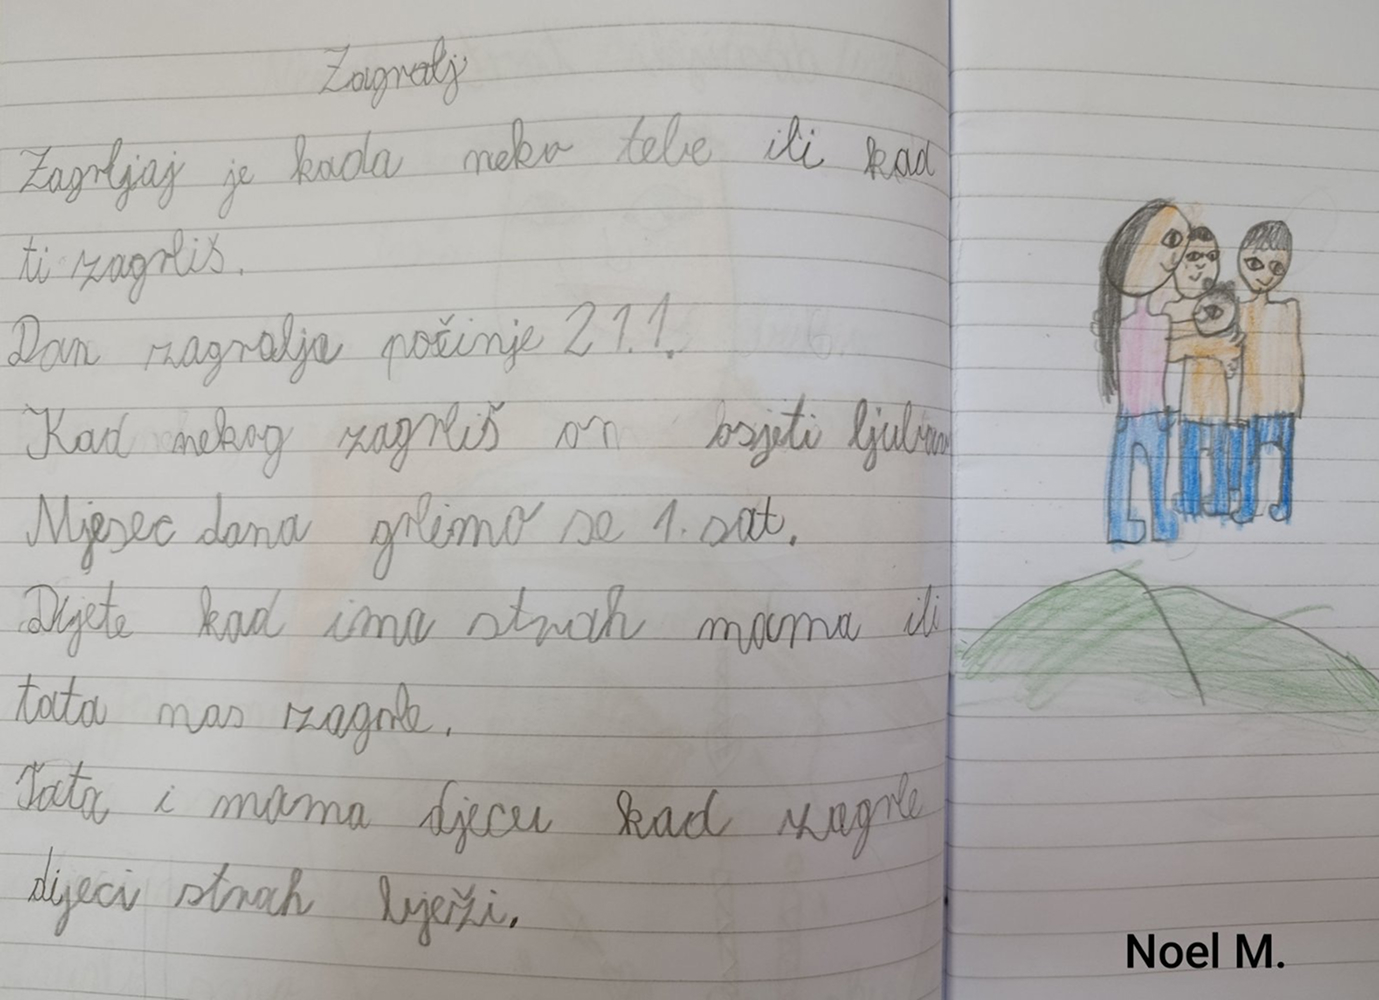 Zagralj
Zagrljaj je kada neko tebe ili kad
ti zagrliš.
Dan zagralja počinje 21.1.
Kad nekog zagrliš on osjeti ljubav
Mjesec dana grlimo se 1. sat.
Dijete kad ima strah mama ili
tata nas zagrle.
Tata i mama djecu kad zagrle
dijeci strah bježi.
Noel M.